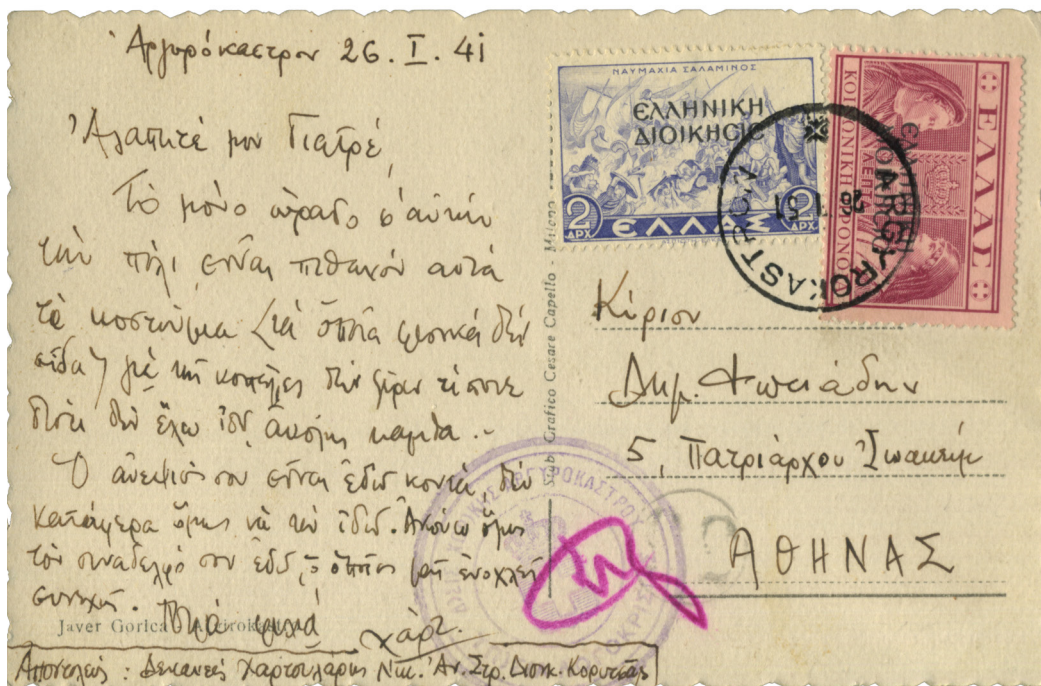 Ἀργυρόκαστρον 26. I. 41
Ἀγαπητέ μου Γιατρέ,
Τὸ μόνο ὡραῖο σ' αὐτὴν
τὴν πόλι εἶναι πιθανὸν αὐτὰ
τὰ κοστούμια (τὰ ὁποῖα φυσικὰ δὲν
εἶδα) γιὰ τὶς κοπέλλες δὲν ξέρω τί
διότι δὲν ἔχω ἰδῆ ἀκόμη καμμία.-
Ὁ ἀνεψιός σου εἶναι ἐδῶ κοντά, δὲν
κατάφερα ὅμως νὰ τὸν ἰδῶ. Ἀκούω ὅμως
τὸν συνάδελφό σου ἐδῶ, ὁ ὁποῖος μᾶς ἐνοχλεῖ
συνεχῶς.
Javer Gorica
Ἀποστολεύς: Δεκανεὺς Χαρτουλάρης Νικ. Ἀν. Στρ. Διοικ. Κορυτσᾶς
Grafico Cesare Capello - Milano
ΝΑΥΜΑΧΙΑ ΣΑΛΑΜΙΝΟΣ
ΕΛΛΗΝΙΚΗ
ΔΙΟΙΚΗCΙC
2 ΔΡΧ ΕΛΛΑΣ 2 ΔΡΧ
ΕΛΛΑΣ
ΚΟΙΝΩΝΙΚΗ ΠΡΟΝΟΙΑ
ARGYROKASTRON
26 1
Κύριον
Δημ. Φωτιάδην
5, Πατριάρχου Ἰωακείμ
ΑΘΗΝΑΣ
ΑΡΓΥΡΟΚΑΣΤΡΟΥ